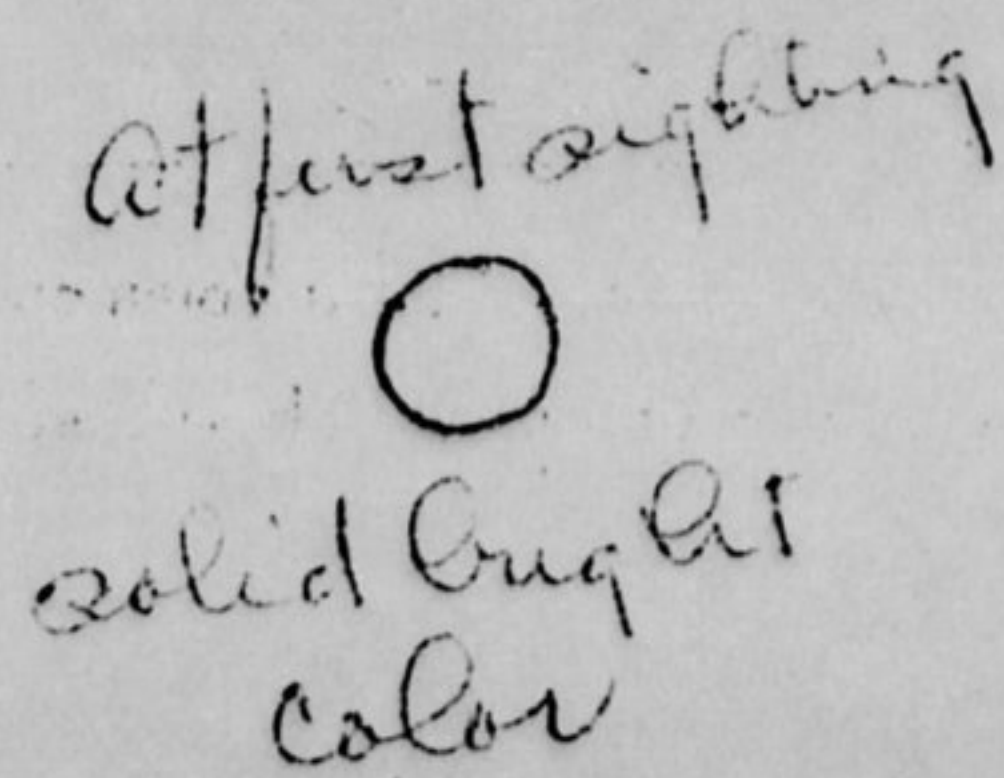 At first sighting
solid bright
color